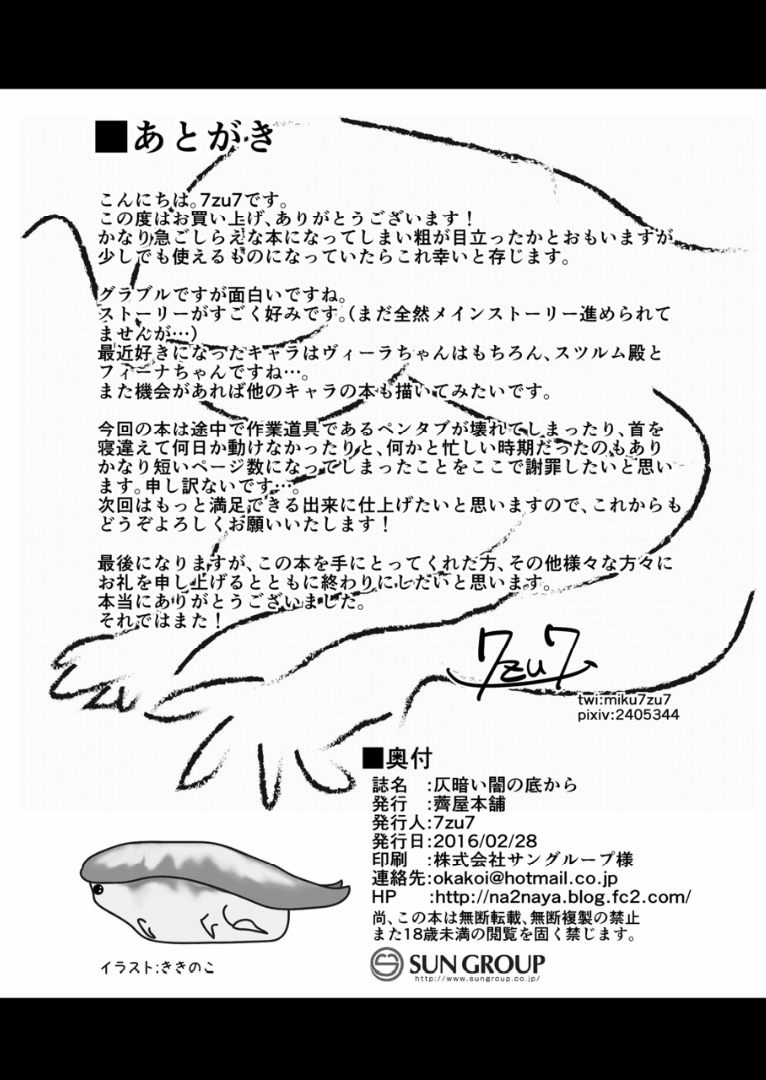 ■あとがき
こんにちは。7zu7です。
この度はお買い上げ、ありがとうございます！
かなり急ごしらえな本になってしまい粗が目立ったかとおもいますが
少しでも使えるものになっていたらこれ幸いと存じます。
グラブルですが面白いですね。
ストーリーがすごく好みです。（まだ全然メインストーリー進められて
ませんが…）
最近好きになったキャラはヴィーラちゃんはもちろん、スツルム殿と
フィーナちゃんですね…。
また機会があれば他のキャラの本も描いてみたいです。
今回の本は途中で作業道具であるペンタブが壊れてしまったり、首を
寝違えて何日か動けなかったりと、何かと忙しい時期だったのもあり
かなり短いページ数になってしまったことをここで謝罪したいと思い
ます。申し訳ないです…。
次回はもっと満足できる出来に仕上げたいと思いますので、これからも
どうぞよろしくお願いいたします！
最後になりますが、この本を手にとってくれた方、その他様々な方々に
お礼を申し上げるとともに終わりにしたいと思います。
本当にありがとうございました。
それではまた！
7zu7
twi:miku7zu7
pixiv:2405344
■奥付
誌名　:仄暗い闇の底から
発行　:薺屋本舗
発行人:7zu7
発行日:2016/02/28
印刷　:株式会社サングループ様
連絡先:okakoi@hotmail.co.jp
HP　:http://na2naya.blog.fc2.com/
尚、この本は無断転載、無断複製の禁止
また18歳未満の閲覧を固く禁じます。
イラスト:ききのこ
SUN GROUP
http://www.sungroup.co.jp/